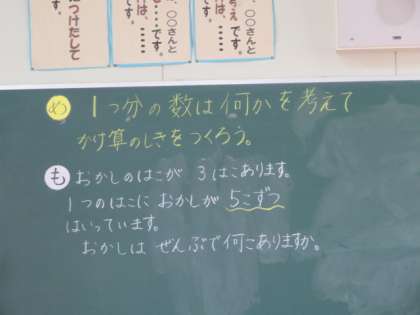 、〇〇さんと
、〇〇さんと
です。
つけたして
め 1つ分の数は何かを考えて
かけ算のしきをつくろう。
も おかしのはこが 3はこあります。
1つのはこに おかしが 5こずつ
はいっています。
おかしは ぜんぶで何こありますか。